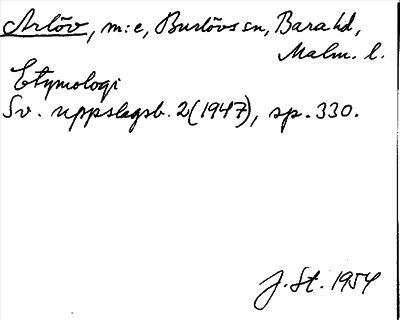 Arlöv, m:e, Burlövs sn, Bara hd,
Malm. l.
Etymologi
Sv. uppslagsb. 2(1947), sp. 330.
J. St. 1954